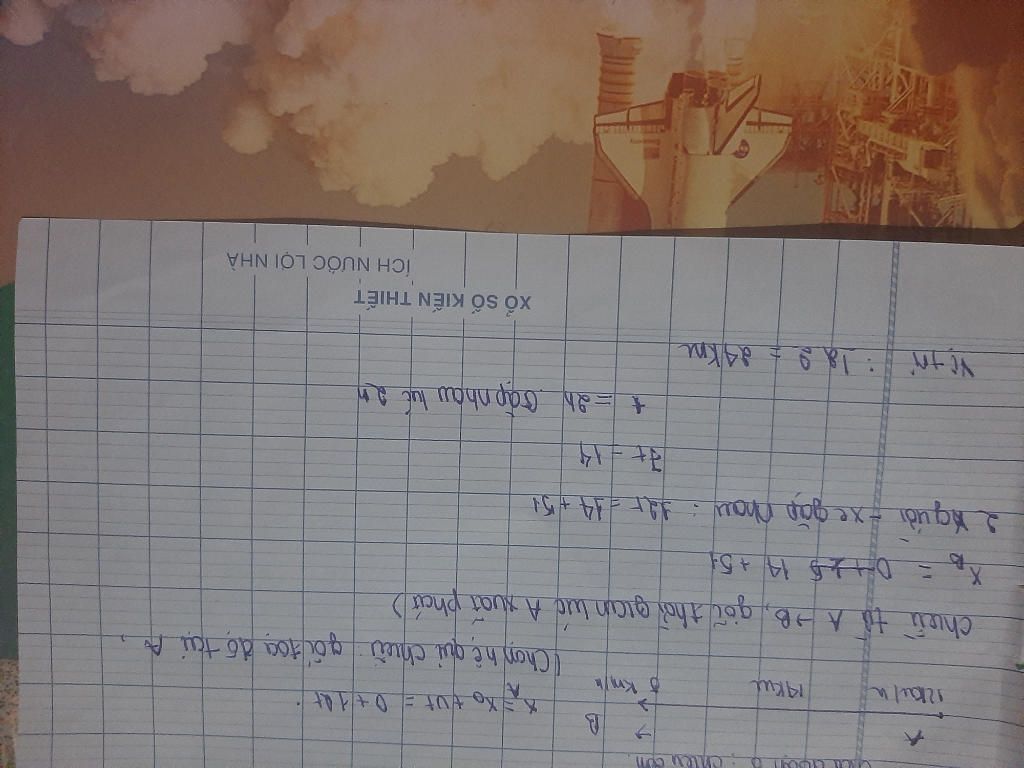 A → B
12km/h 14km 5 km/h
x_A = x₀ + vt = 0 + 12t.
(Chọn hệ qui chiếu: gốc tọa độ tại A,
chiều từ A → B, gốc thời gian lúc A xuất phát)
x_B = 14 + 5t
2 người - xe gặp nhau : 12t = 14 + 5t
7t = 14
t = 2h Gặp nhau lúc 2h
Vị trí : 12.2 = 24km
XỔ SỐ KIẾN THIẾT
ÍCH NƯỚC LỢI NHÀ